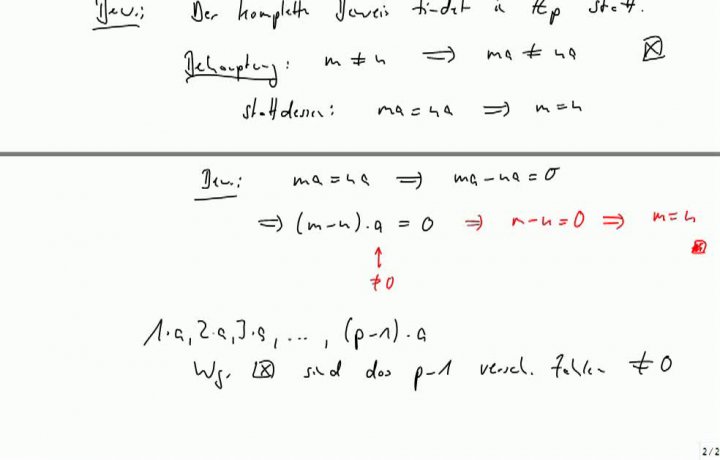 Bew.: Der komplette Beweis findet in ℤp statt.
Behauptung: m ≠ n ⟹ ma ≠ na ⊠
stattdessen: ma = na ⟹ m = n
Bew.: ma = na ⟹ ma - na = 0
⟹ (m-n)·a = 0 ⟹ m-n = 0 ⟹ m = n
↑
≠ 0
1·a, 2·a, 3·a, ..., (p-1)·a
Wg. ⊠ sind das p-1 versch. Zahlen ≠ 0
2/2